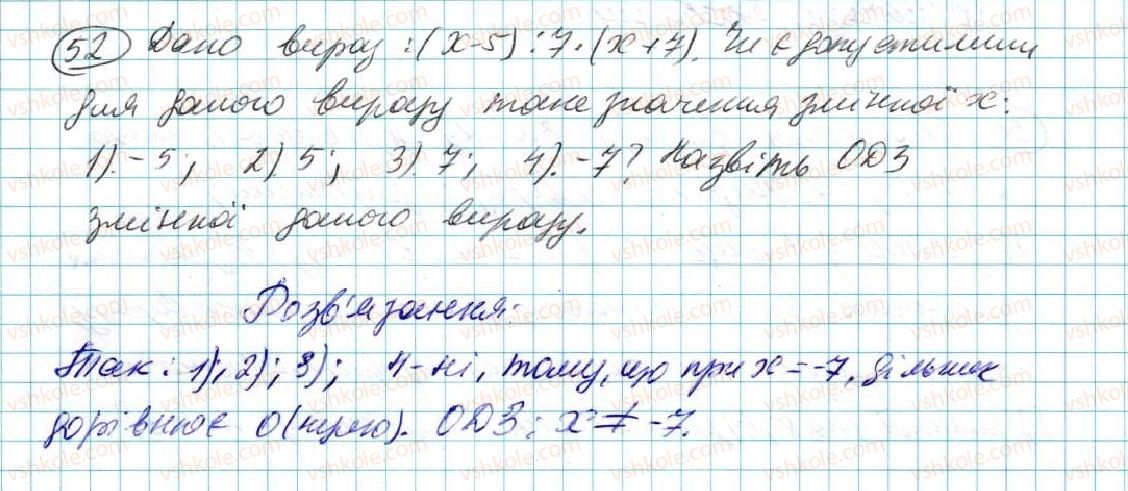 52 Дано вираз :(x-5) : 7 · (x+7). Чи є допустимим
для даного виразу таке значення змінної x:
1). -5; 2). 5; 3). 7; 4). -7? Назвіть ОДЗ
змінної даного виразу.
Розв'язання:
Так: 1); 2); 3); 4-ні, тому, що при x = -7, дільник
дорівнює 0 (нулю). ОДЗ: x ≠ -7.